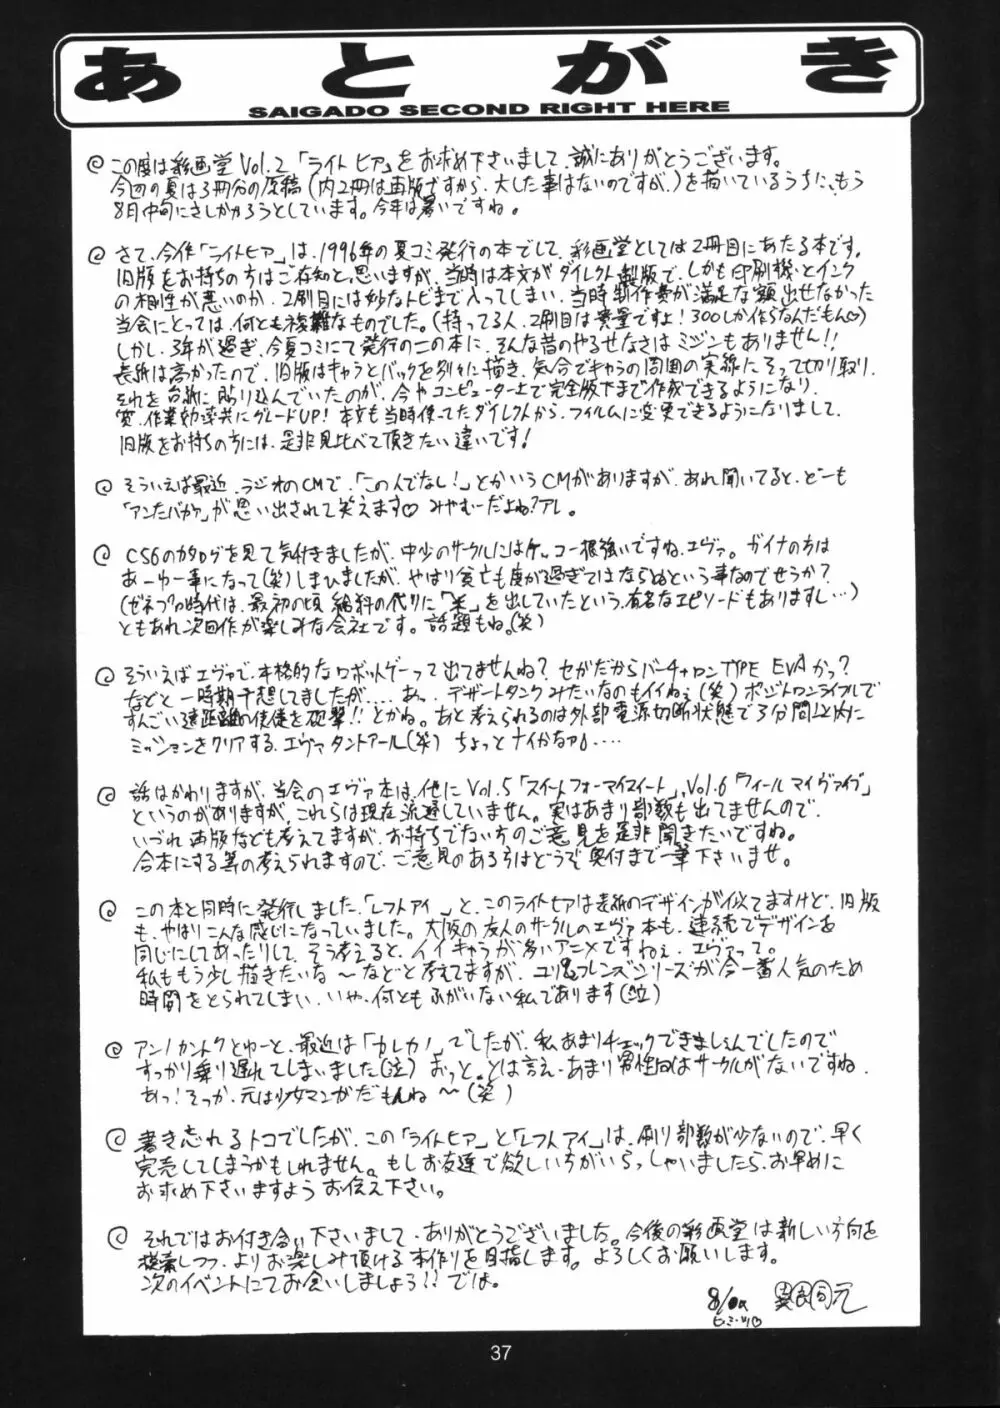 あとがき
SAIGADO SECOND RIGHT HERE
この度は彩画堂Vol.2「ライトヒア」をお求め下さいまして、誠にありがとうございます。
今回の夏は3冊分の原稿(内2冊は再版ですから、大した事はないのですが、)を描いているうちに、もう
8月中旬にさしかかろうとしています。今年は暑いですね。
さて、今作「ライトヒア」は、1996年の夏コミ発行の本でして、彩画堂としては2冊目にあたる本です。
旧版をお持ちの方はご存知と思いますが、当時は本文がダイレクト製版で、しかも印刷機とインク
の相性が悪いのか、2刷目には妙なトビまで入ってしまい、当時制作費が満足な額出せなかった
当会にとっては、何とも複雑なものでした。(持ってる人、2刷目は貴重ですよ!300しか作らなんだもん♡)
しかし、3年が過ぎ、今夏コミにて発行のこの本に、そんな昔のやるせなさはミジンもありません!!
表紙は高かったので、旧版はキャラとバックを別々に描き、気合でキャラの周囲の実線にそって切り取り、
それを台紙に貼り込んでいたのが、今やコンピューター上で完全版下まで作成できるようになり
質、作業効率共にグレードUP!本文も当時使ってたダイレクトから、フィルムに変更できるようになりまして、
旧版をお持ちの方には、是非見比べて頂きたい違いです!
そういえば最近、ラジオのCMで、「この人でなし!」とかいうCMがありますが、あれ聞いてると、どーも
「アンたバカァ」が思い出されて笑えます♡ みやむーだよね?アレ。
CS6のカタログを見て気付きましたが、中少のサークルにはケッコー根強いですね、エヴァ。ガイナの方は
あーゆー事になって(笑)しまひましたが、やはり貧亡も度が過ぎてはならぬという事なのでせうか?
(ゼネプロ時代は、最初の頃、給料の代りに「米」を出していたという、有名なエピソードもありますし…)
ともあれ次回作が楽しみな会社です。話題もね。(笑)
そういえばエヴァで、本格的なロボットゲーって出てませんね?セガだからバーチャロンTYPE EVAかっ?
などと一時期予想してましたが……あっ、デザートタンクみたいなのもイイねぇ(笑)ポジトロンライフルで
すんごい遠距離の使徒を砲撃!!とかね。あと考えられるのは外部電源切断状態で3分間以内に
ミッションをクリアする、エヴァタントアール(笑)ちょっとナイかなァ。....
話はかわりますが、当会のエヴァ本は、他にVol.5「スイートフォーマイスイート」、Vol.6「フィールマイヴァイヴ」
というのがありますが、これらは現在流通していません。実はあまり部数も出てませんので、
いづれ再版なども考えてますが、お持ちでない方のご意見を是非聞きたいですね。
合本にする等の考えられますので、ご意見のある方はどうぞ奥付まで一筆下さいませ。
この本と同時に発行しました、「レフトアイ」と、このライトヒアは表紙のデザインが似てますけど、旧版
も、やはりこんな感じになっていました。大阪の友人のサークルのエヴァ本も、連続でデザインを
同じにしてあったりして、そう考えると、イイキャラが多いアニメですねぇ、エヴァって。
私ももう少し描きたいな〜などと考えてますが、ユリ&フレンズシリーズが今一番人気のため
時間をとられてしまい、いや、何ともふがいない私であります(泣)
アンノカントクとゆーと、最近は「カレカノ」でしたが、私あまりチェックできましぇんでしたので
すっかり乗り遅れてしまいました(泣)おっと。とは言え、あまり男性向はサークルがないですね
あっ!そっか、元は少女マンガだもんね〜(笑)
書き忘れるトコでしたが、この「ライトヒア」と「レフトアイ」は、刷り部数が少ないので、早く
完売してしまうかもしれません。もしお友達で欲しい方がいらっしゃいましたら、お早めに
お求め下さいますようお伝え下さい。
それではお付き合い下さいまして、ありがとうございました。今後の彩画堂は新しい方向を
模索しつつ、よりお楽しみ頂ける本作りを目指します。よろしくお願いします。
次のイベントにてお会いしましょう!!では。
37